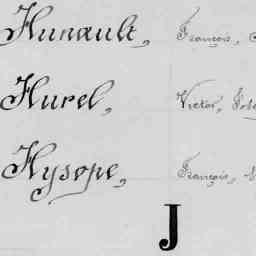 Hunault, François,
Hurel, Victor,
Hysope, François,
J